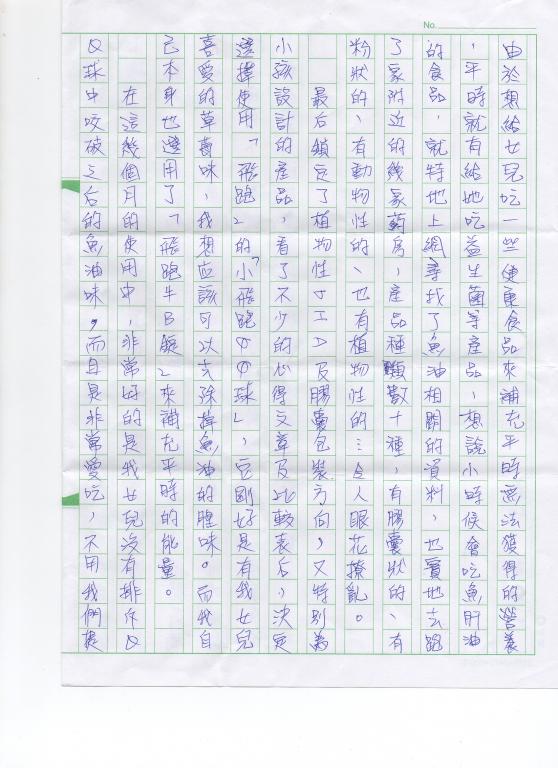 No.
由於想給女兒吃一些健康食品來補充平時無法獲得的營養
，平時就有給她吃益生菌等產品，想說小時候會吃魚肝油
的食品，就特地上網尋找了魚油相關的資料，也實地去跑
了家附近的幾家藥房，產品種類數十種，有膠囊狀的、有
粉狀的、有動物性的、也有植物性的…令人眼花撩亂。
最后鎖定了植物性DHA及膠囊包裝方向，又特別為
小孩設計的產品，看了不少的心得文章及比較表后，決定
選擇使用「飛跑」的「小飛跑QQ球」，它剛好是有我女兒
喜愛的草莓味，我想應該可以去除掉魚油的腥味。而我自
己本身也選用了「飛跑牛B錠」來補充平時的能量。
在這幾個月的使用中，非常好的是我女兒沒有排斥Q
Q球中咬破之后的魚油味，而且是非常愛吃，不用我們提